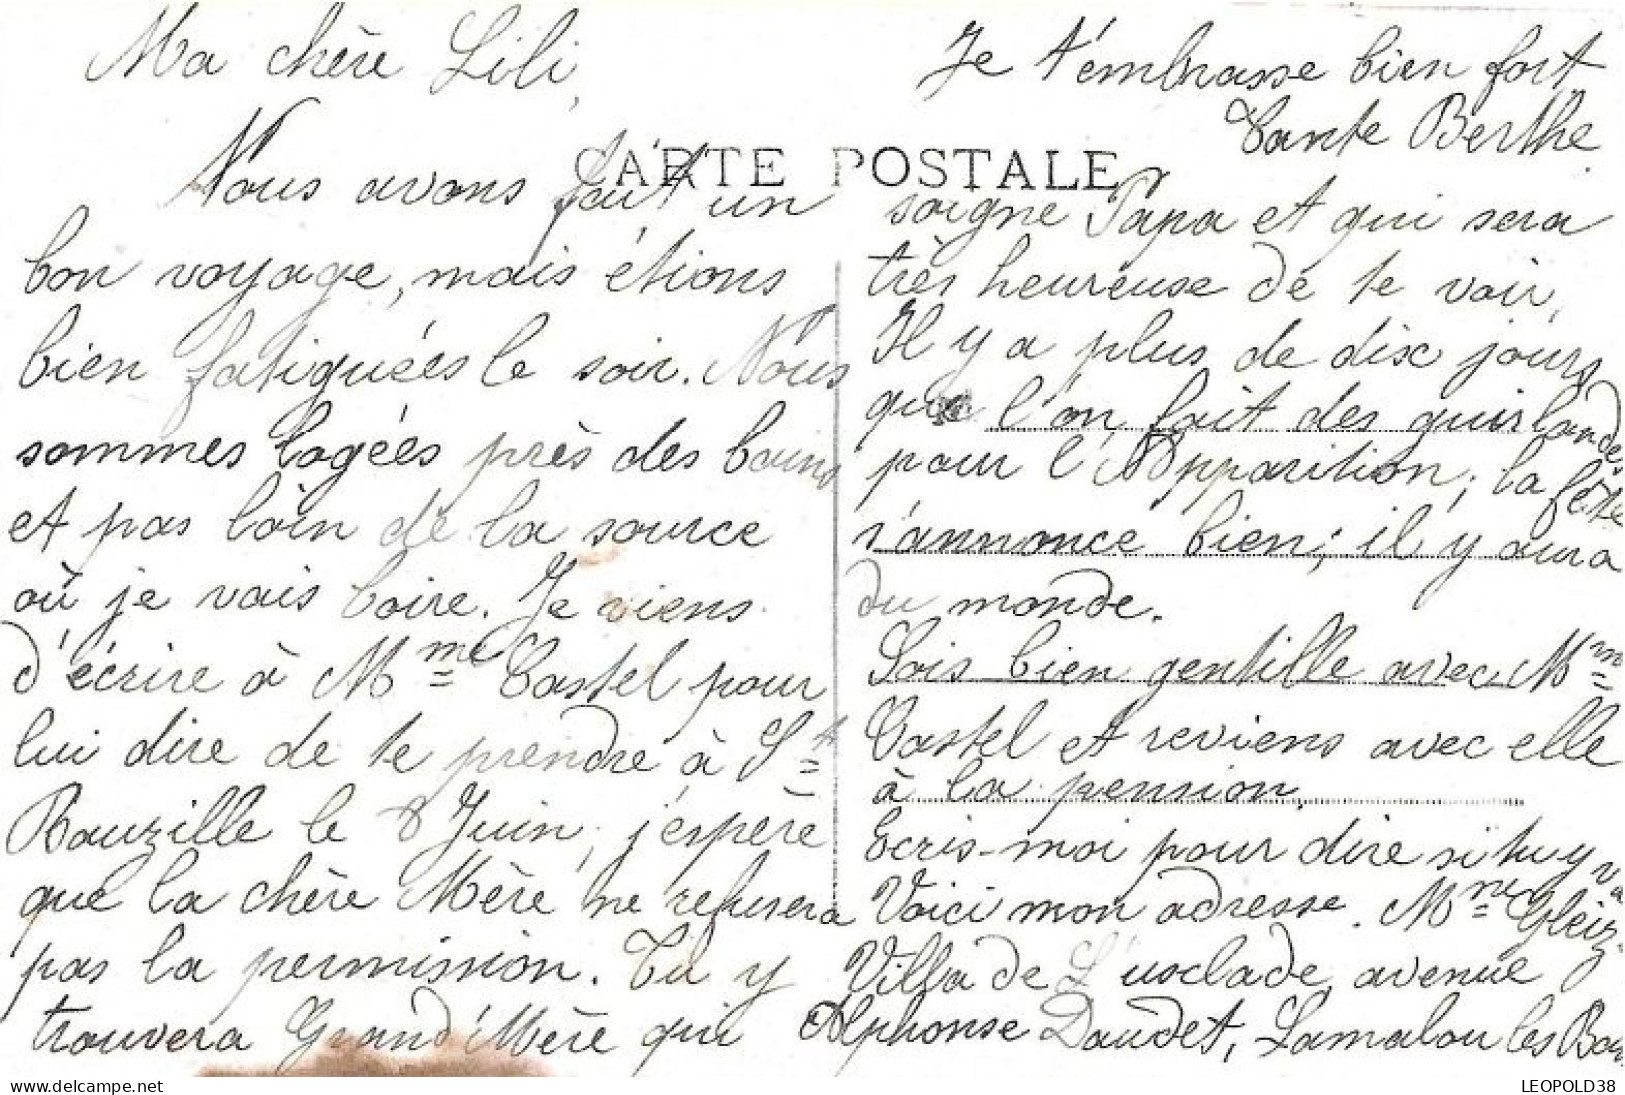 Ma chère Lili,
Nous avons fait un
bon voyage, mais étions
bien fatiguées le soir. Nous
sommes logées près des bains
et pas loin de la source
où je vais boire. Je viens
d'écrire à Mme Castel pour
lui dire de te prendre à St
Bauzille le 8 Juin, j'espère
que la chère Mère ne refusera
pas la permission. Tu y
trouvera Grand'Mère qui
CARTE POSTALE
soigne Papa et qui sera
très heureuse de te voir.
Il y a plus de dix jours
que l'on fait des guirlandes
pour l'Apparition; la fête
s'annonce bien; il y aura
du monde.
Sois bien gentille avec Mm
Castel et reviens avec elle
à la pension.
Ecris-moi pour dire si tu y va
Voici mon adresse. Mme Gleiz
Villa de L'usclade, avenue
Alphonse Daudet, Lamalou les Bai
Je t'embrasse bien fort,
Tante Berthe.
LEOPOLD38